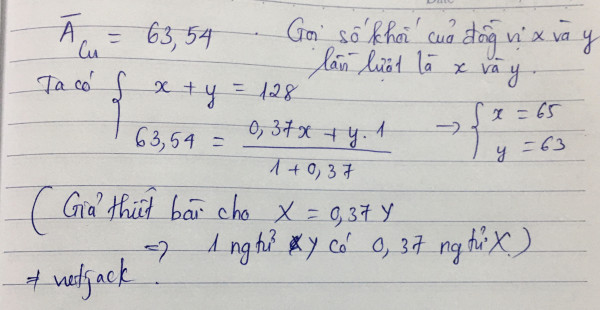 Ā Cu = 63,54 . Gọi số khối của đồng vị x và y
lần lượt là x và y.
Ta có { x + y = 128
63,54 = (0,37x + y.1) / (1 + 0,37) → { x = 65
y = 63
( Giả thiết bài cho X = 0,37 Y
=> 1 ngtử Y có 0,37 ngtử X )